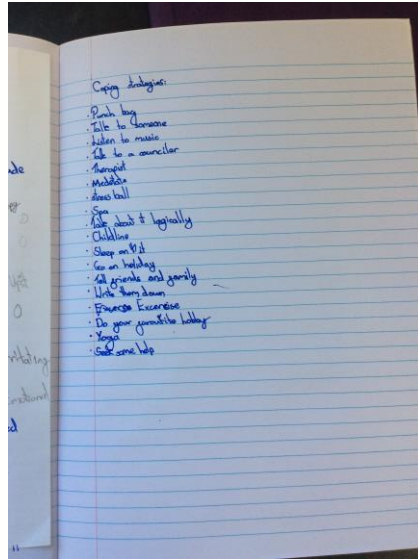 Coping strategies:
· Punch bag
· Talk to someone
· Listen to music
· Talk to a counciler
· Therapist
· Meditate
· stress ball
· Spa
· Talk about it logically
· Childline
· Sleep on it
· Go on holiday
· Tell friends and family
· Write them down
· Excersise
· Do your favourite hobby
· Yoga
· Seek some help